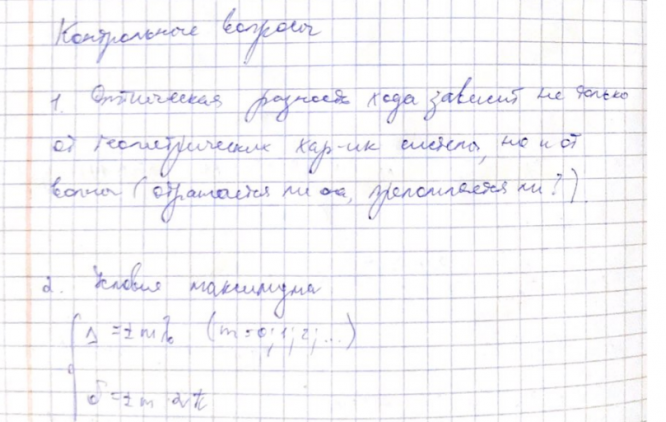 Контрольные вопросы
1. Оптическая разность хода зависит не только
от геометрических хар-ик системы, но и от
волны (отражается ли она, преломляется ли?).
2. Условия максимума
Δ = ± mλ₀ (m = 0; 1; 2; ...)
δ = ± m 2π